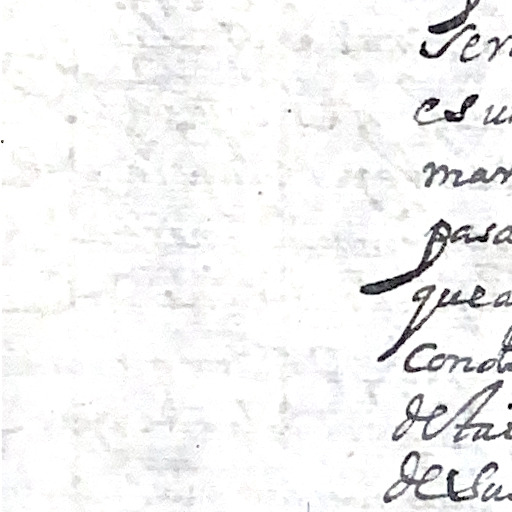 Ser
es u
man
pasa
que a
Cono
de tai
de su